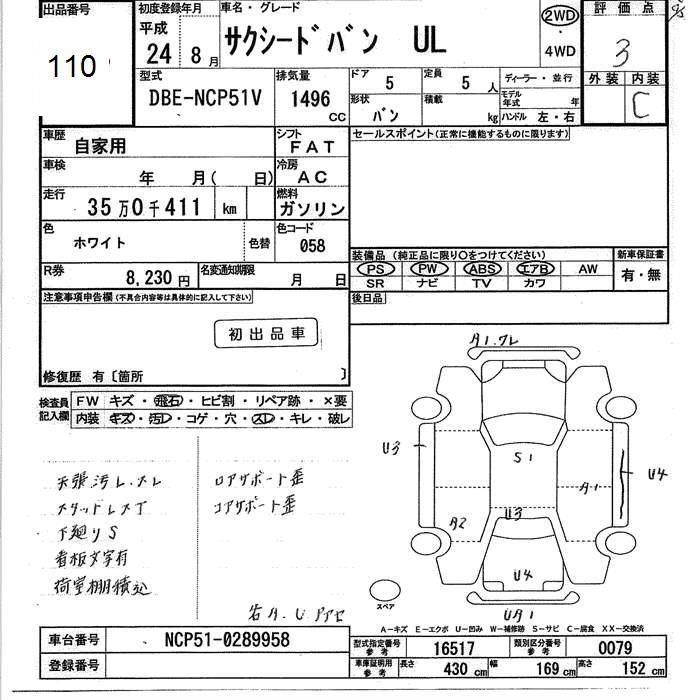 出品番号
110
初度登録年月
平成
24 8 月
車名・グレード
サクシードバン UL
2WD
・
4WD
評価点
3
外装 内装
C
型式
DBE-NCP51V
排気量
1496
CC
ドア 5
定員 5 人
ディーラー・並行
形状
バン
積載
kg
モデル
年式 年
ハンドル 左・右
車歴
自家用
シフト
FAT
セールスポイント(正常に機能するものに限ります)
車検
年 月( 日)
冷房
AC
走行
35万0千411 km
燃料
ガソリン
色
ホワイト
色替
色コード
058
装備品 (純正品に限り○をつけてください)
新車保証書
PS PW ABS エアB AW
有・無
SR ナビ TV カワ
R券
8,230 円
名変通知期限
月 日
後日品
注意事項申告欄(不具合内容等は具体的に記入して下さい)
初出品車
修復歴 有〔箇所 〕
検査員
記入欄
FW キズ・飛石・ヒビ割・リペア跡・×要
内装 キズ・汚レ・コゲ・穴・スレ・キレ・破レ
天張汚レ、スレ
スタッドレスT
下廻りS
看板文字有
荷室棚積込
ロアサポート歪
コアサポート歪
A1.プレ
U3
S1
A1
U4
A2
U3
U4
スペア
UA1
A−キズ E−エクボ U−凹み W−補修跡 S−サビ C−腐食 XX−交換済
車台番号
NCP51-0289958
登録番号
型式指定番号
参考
16517
類別区分番号
参考
0079
車庫証明用
参考
長さ 430 cm
幅 169 cm
高さ 152 cm